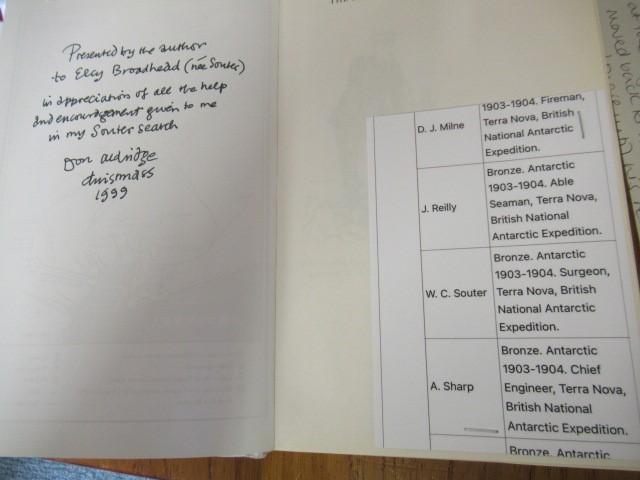 Presented by the author
to Elsy Broadhead (née Souter)
in appreciation of all the help
and encouragement given to me
in my Souter search
Don Aldridge
Christmas
1999
D. J. Milne
1903-1904. Fireman,
Terra Nova, British
National Antarctic
Expedition.
J. Reilly
Bronze. Antarctic
1903-1904. Able
Seaman, Terra Nova,
British National
Antarctic Expedition.
W. C. Souter
Bronze. Antarctic
1903-1904. Surgeon,
Terra Nova, British
National Antarctic
Expedition.
A. Sharp
Bronze. Antarctic
1903-1904. Chief
Engineer, Terra Nova,
British National
Antarctic Expedition.
Bronze. Antarctic
moved back